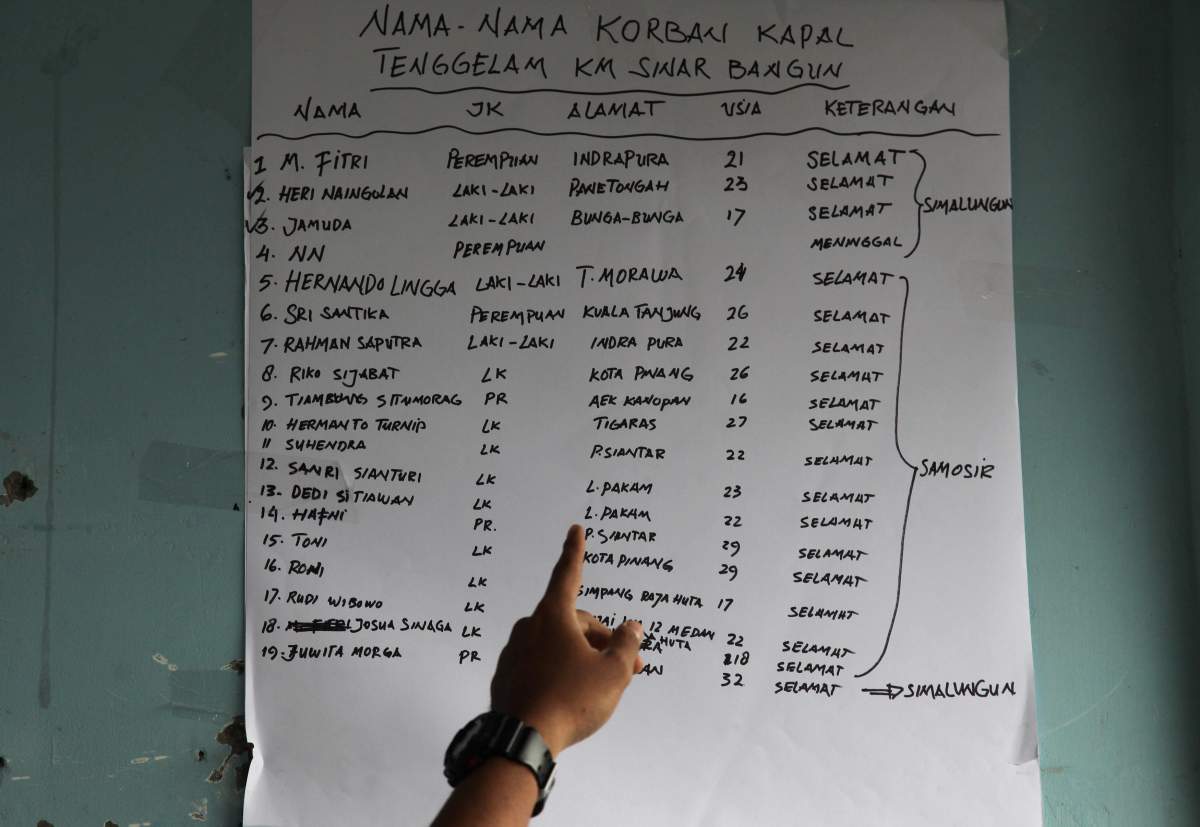 NAMA-NAMA KORBAN KAPAL
TENGGELAM KM SINAR BANGUN
NAMA JK ALAMAT USIA KETERANGAN
1 M. FITRI PEREMPUAN INDRAPURA 21 SELAMAT
2. HERI NAINGOLAN LAKI-LAKI PANETONGAH 23 SELAMAT SIMALUNGUN
3. JAMUDA LAKI-LAKI BUNGA-BUNGA 17 SELAMAT
4. NN PEREMPUAN MENINGGAL
5. HERNANDO LINGGA LAKI-LAKI T. MORAWA 24 SELAMAT
6. SRI SANTIKA PEREMPUAN KUALA TANJUNG 26 SELAMAT
7. RAHMAN SAPUTRA LAKI-LAKI INDRA PURA 22 SELAMAT
8. RIKO SIJABAT LK KOTA PINANG 26 SELAMAT
9. TIAMBUNG SITUMORAG PR AEK KANOPAN 16 SELAMAT
10. HERMANTO TURNIP LK TIGARAS 27 SELAMAT
11 SUHENDRA LK P.SIANTAR 22 SELAMAT SAMOSIR
12. SANRI SIANTURI LK L. PAKAM 23 SELAMAT
13. DEDI SITIAWAN LK L. PAKAM 22 SELAMAT
14. HAFNI PR. P. SIANTAR 29 SELAMAT
15. TONI LK KOTA PINANG 29 SELAMAT
16. RONI LK SIMPANG RAJA HUTA 17 SELAMAT
17. RUDI WIBOWO LK 12 MEDAN 22 SELAMAT
18. JOSUA SINAGA LK HUTA 18 SELAMAT
19. JUWITA MORGA PR 32 SELAMAT ⇒ SIMALUNGUN